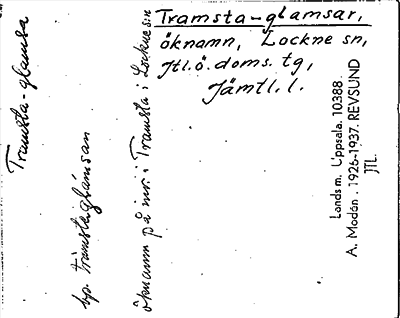 Tramsta-glamsar,
öknamn, Lockne sn,
Jtl. ö. doms. tg,
Jämtl. l.
Tramsta-glamsa
bp. trà̀mstaglámsan
öknamn på inv. i Tramsta i Lockne sn
Landsm. Uppsala. 10388.
A. Modén. 1926-1937. REVSUND
JTL.